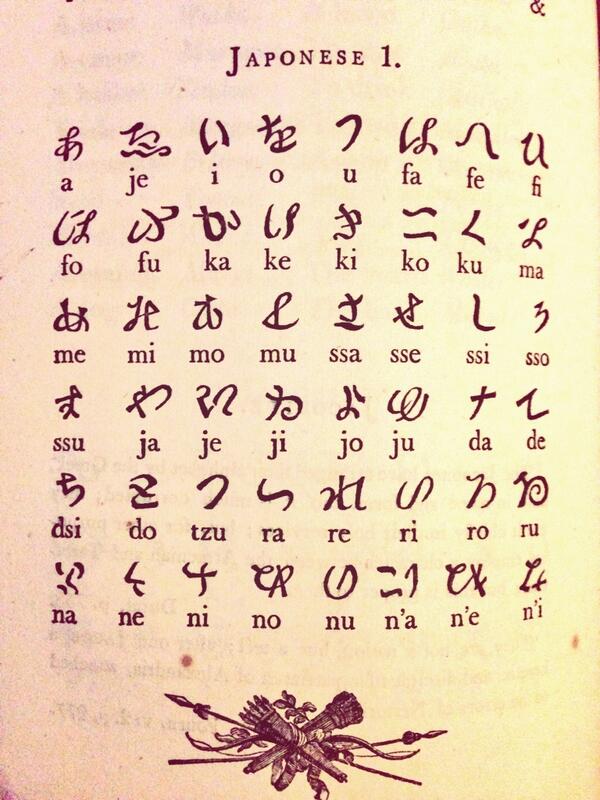 &
JAPONESE 1.
あ ゑ い を つ は へ ひ
a je i o u fa fe fi
か け き こ く
fo fu ka ke ki ko ku ma
め み さ せ し ろ
me mi mo mu ssa sse ssi sso
す や ゐ よ ゆ ナ て
ssu ja je ji jo ju da de
ち つ ら れ り ろ る
dsi do tzu ra re ri ro ru
na ne ni no nu n'a n'e n'i